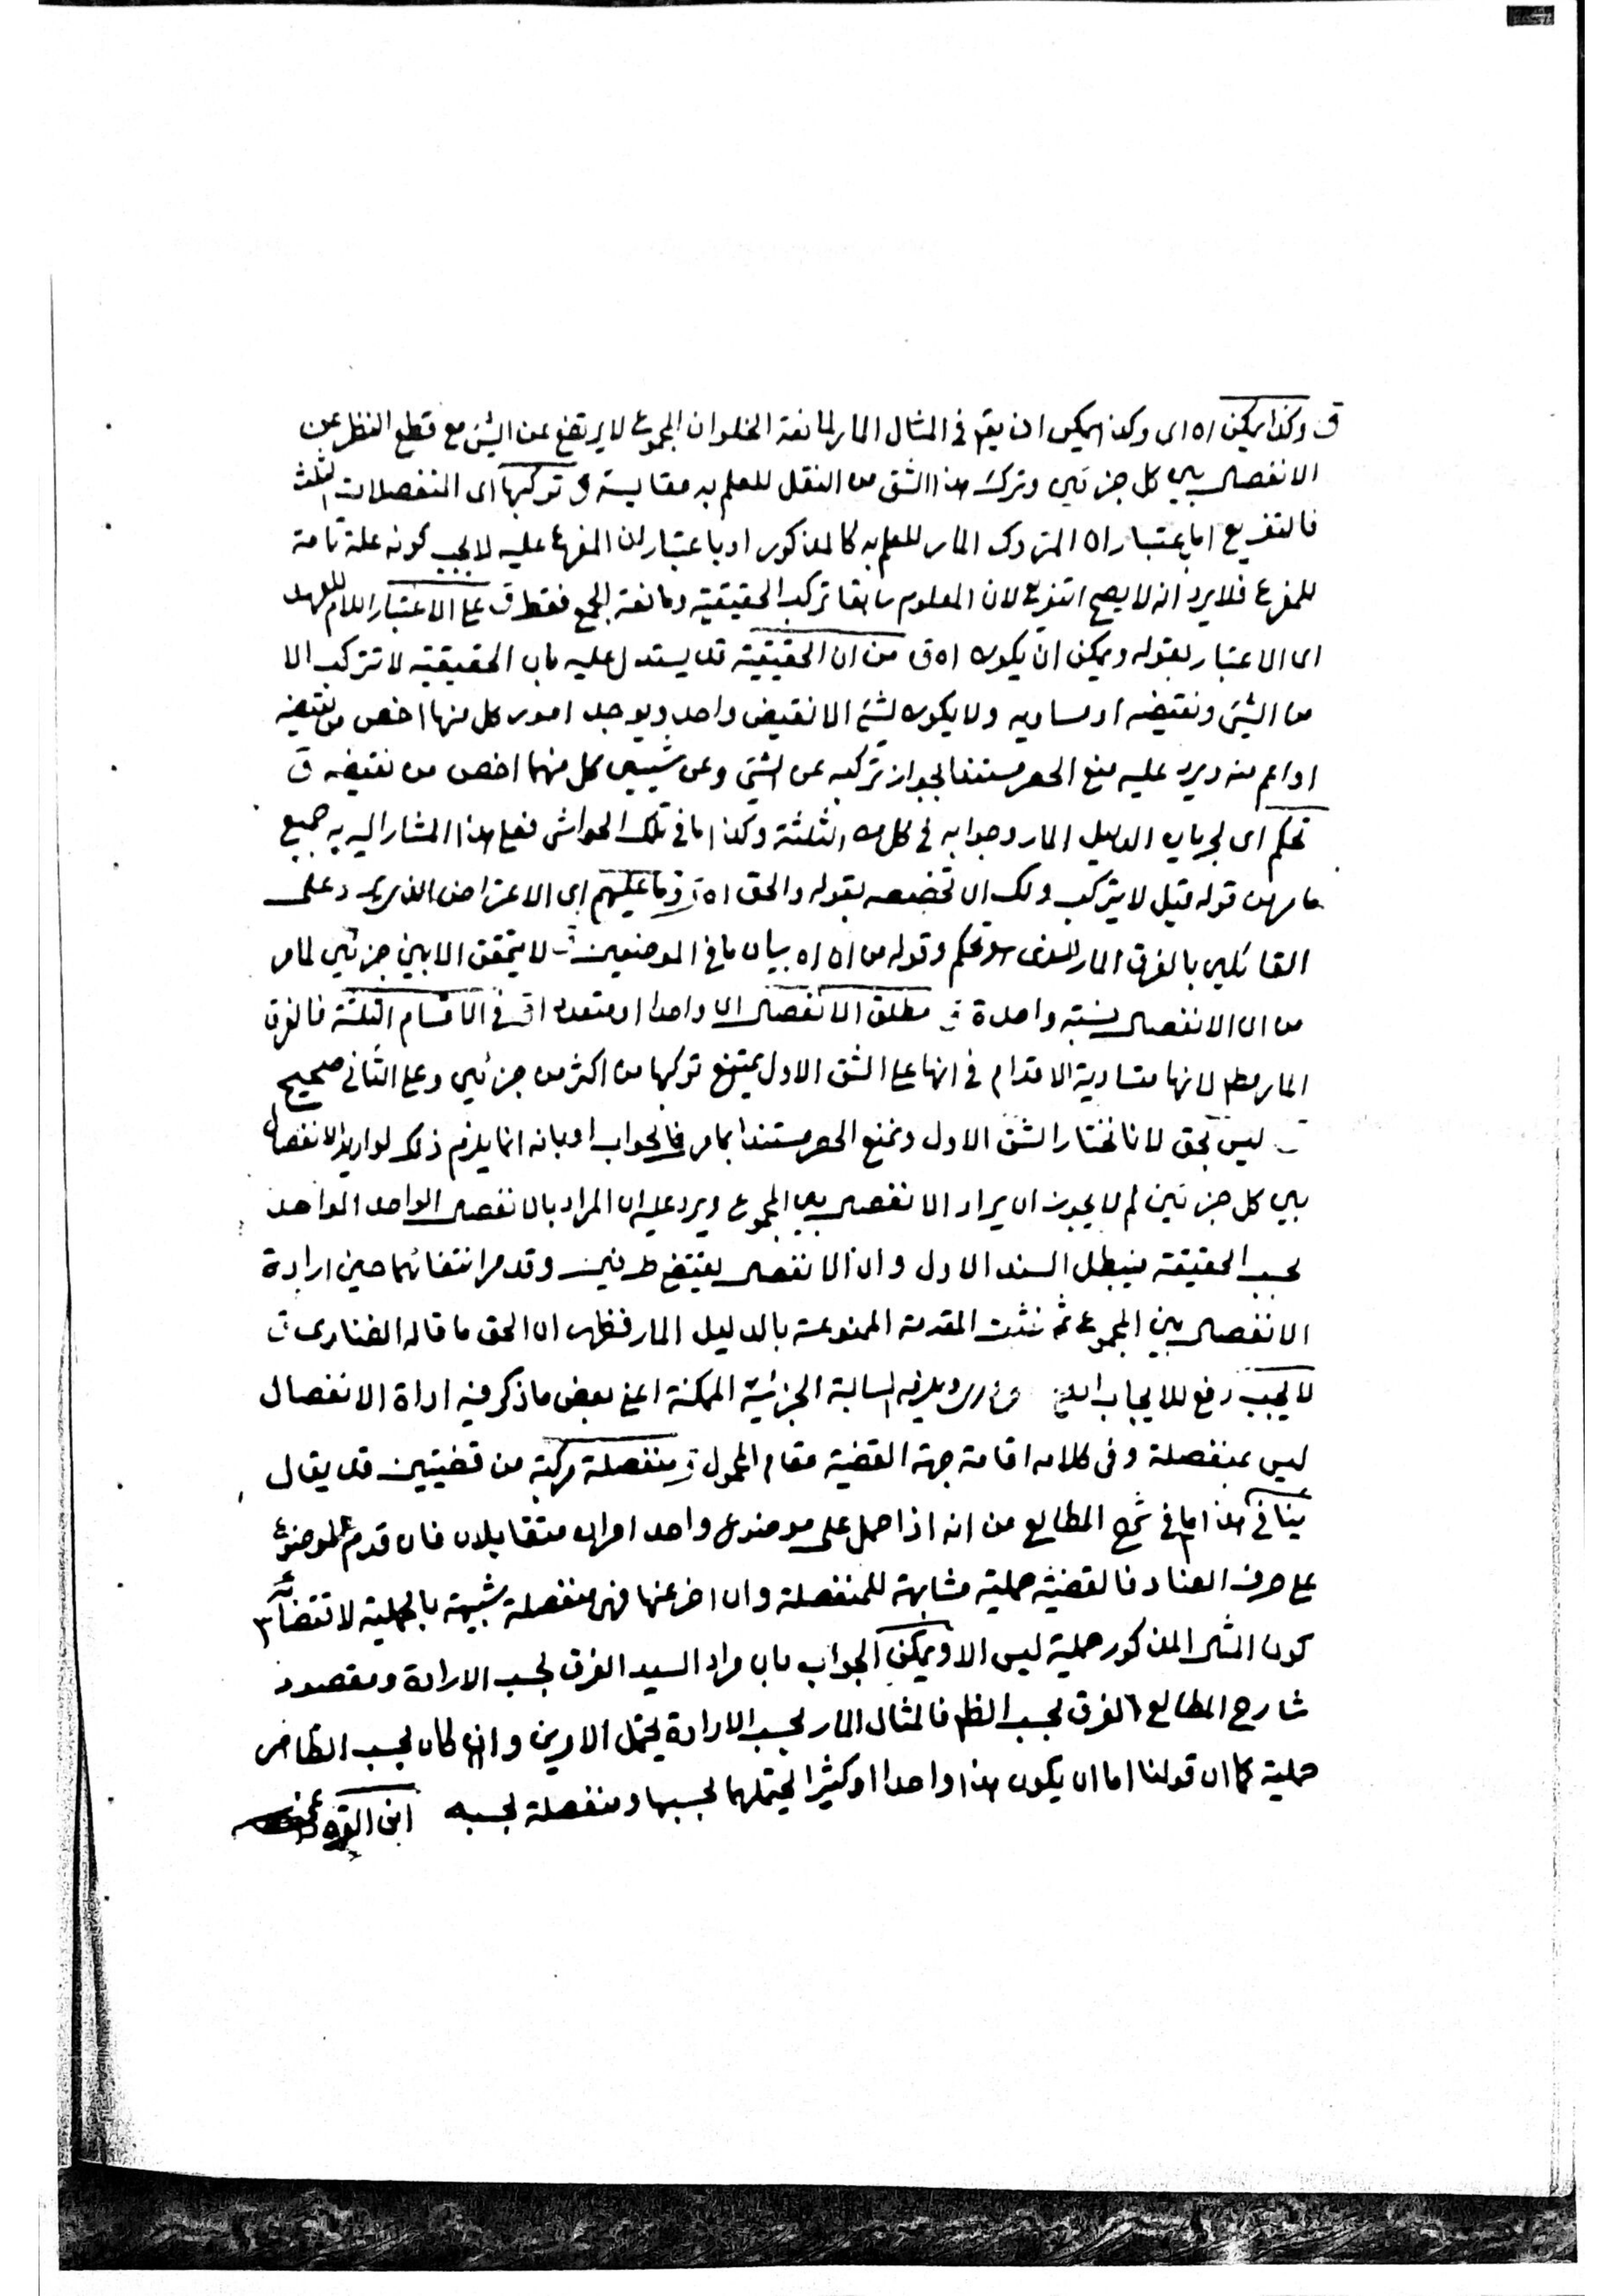 ق وكذا يمكن اه اى وكذا يمكن ان يقم فى المثال المار لمانعة الخلو ان المجموع لا يرتفع عن الشئ مع قطع النظر عن
الانفصال بين كل جزئين وترك هذا الشق من النقل للعلم به مقايسة ق تركبها اى المنفصلات الثلث
فالتفريع اما باعتبار اه المتروك المار للعلم به كالمذكور او باعتبار ان المفرع عليه لا يجب كونه علة تامة
للمفرع فلا يرد انه لا يصح التفريع لان المعلوم سابقا تركب الحقيقية ومانعة الجمع فقط ق على الاعتبار اللام للعهد
اى الاعتبار بقوله ويمكن ان يكون اه ق من ان الحقيقية قد يستدل عليه بان الحقيقية لا تتركب الا
من الشئ ونقيضه او مساويه ولا يكون لشئ الا نقيض واحد ويوجد امور كل منها اخص من نقيضه
او اعم منه ويرد عليه منع الحصر مستندا بجواز تركبه عن الشئ وعن شيئين كل منهما اخص من نقيضه ق
تحكم اى لجريان الدليل المار وجوابه فى كل من الثلثة وكذا ما فى تلك الحواشى فعلى هذا المشار اليه به جميع
ما مر من قوله قيل لا يتركب ولك ان تخصصه بقوله والحق اه ق وما عليهم اى الاعتراض الذى يرد على
القائلين بالفرق المار الذى هو تحكم وقوله من ان اه بيان ما فى الموضعين ق لا يتحقق الا بين جزئين لما مر
من ان الانفصال نسبة واحدة ق مطلق الانفصال اى واحدا او متعددا ق فى الاقسام الثلثة فالفرق
المار مطلقا لانها متساوية الاقدام فى انها على الشق الاول يمتنع تركبها من اكثر من جزئين وعلى الثانى صحيح
ق ليس بحق لانا نختار الشق الاول ونمنع الحصر مستندا بما مر فى الجواب او بانه انما يلزم ذلك لو اريد الانفصال
بين كل جزئين لم لا يجوز ان يراد الانفصال بين المجموع ويرد عليه ان المراد بالانفصال الواحد الواحد
بحسب الحقيقة فيبطل السند الاول وان الانفصال يقتضى طرفين وقد مر انتفائهما حين ارادة
الانفصال بين المجموع ثم نثبت المقدمة الممنوعة بالدليل المار فظهر ان الحق ما قاله الفنارى ق
لا يجب رفع للايجاب السالبة الجزئية الممكنة اعنى بعض ما ذكر فيه اداة الانفصال
ليس بمنفصلة وفى كلامه اقامة جهة القضية مقام المحمول ق منفصلة مركبة من قضيتين قد يقال
ينافى هذا ما فى شرح المطالع من انه اذا حمل على موضوع واحد امران متقابلان فان قدم الموضوع
على حرف العناد فالقضية حملية مشابهة للمنفصلة وان اخر عنها فهى منفصلة شبيهة بالحملية لاقتضائه
كون المثال المذكور حملية ليس الا ويمكن الجواب بان مراد السيد الفرق بحسب الارادة ومقصود
شارح المطالع الفرق بحسب الظم فالمثال المار بحسب الارادة يحتمل الامرين وان كان بحسب الظاهر
حملية كما ان قولنا اما ان يكون هذا واحدا او كثيرا يحتملهما بحسبها ومنفصلة بحسبه ابن القره داغى